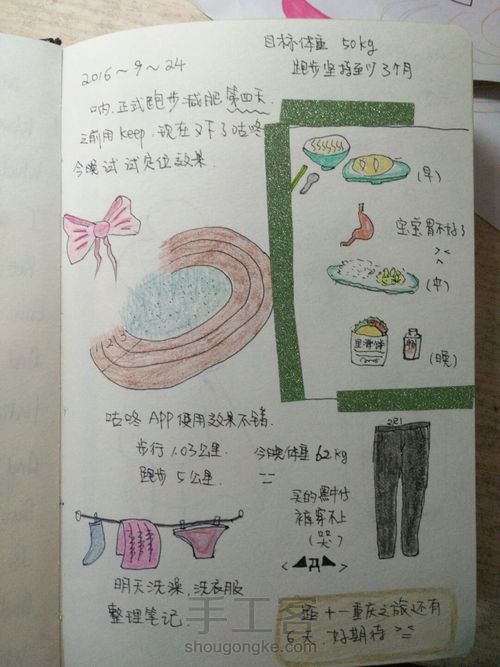 目标体重 50kg
跑步坚持至少3个月
2016～9～24
呐,正式跑步减肥第四天.
之前用 Keep,现在又下了咕咚
今晚试试定位效果.
(早)
宝宝胃不好了
><
(中)
(晚)
123
咕咚 APP 使用效果不错.
步行 1.03公里.
跑步 5公里.
今晚体重 62kg
买的黑牛仔
裤穿不上
(哭)
明天洗澡,洗衣服
整理笔记
十一重庆之旅还有
6天,好期待
手工客
shougongke.com